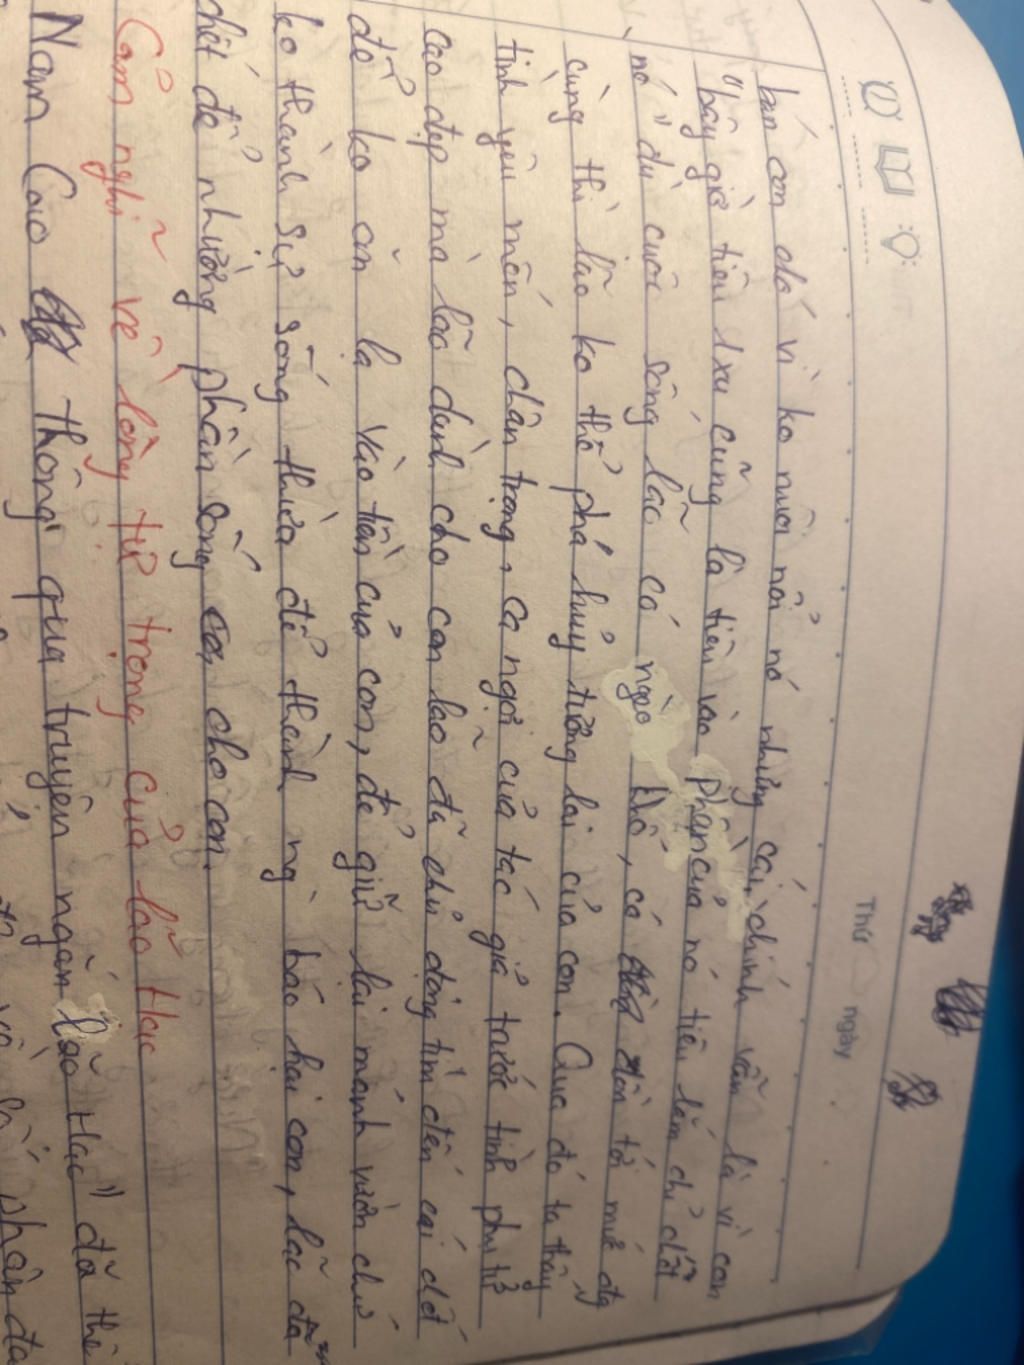 Thứ ngày
bán con chó vì ko nuôi nổi nó nhưng cái chính vẫn là vì con
"bây giờ tiêu 1 xu cũng là tiêu vào phần của nó tiêu lắm chỉ chết
nó" dù cuộc sống lão có nghèo khó, có đến tới mức
cùng thì lão ko thể phá huỷ tương lai của con. Qua đó ta thấy
tình yêu mến, chân trọng, ca ngợi của tác giả trước tình phụ tử
cao đẹp mà lão dành cho con lão đã chủ động tìm đến cái chết
để ko ăn lạ vào tiền của con, để giữ lại mảnh vườn chứ
ko thành sự sống thừa để thành ng báo hại con, lão đã
chết để nhường phần sống cho con.
Cảm nghĩ về lòng tự trọng của lão Hạc
Nam Cao thông qua truyện ngắn lão Hạc" đã thể